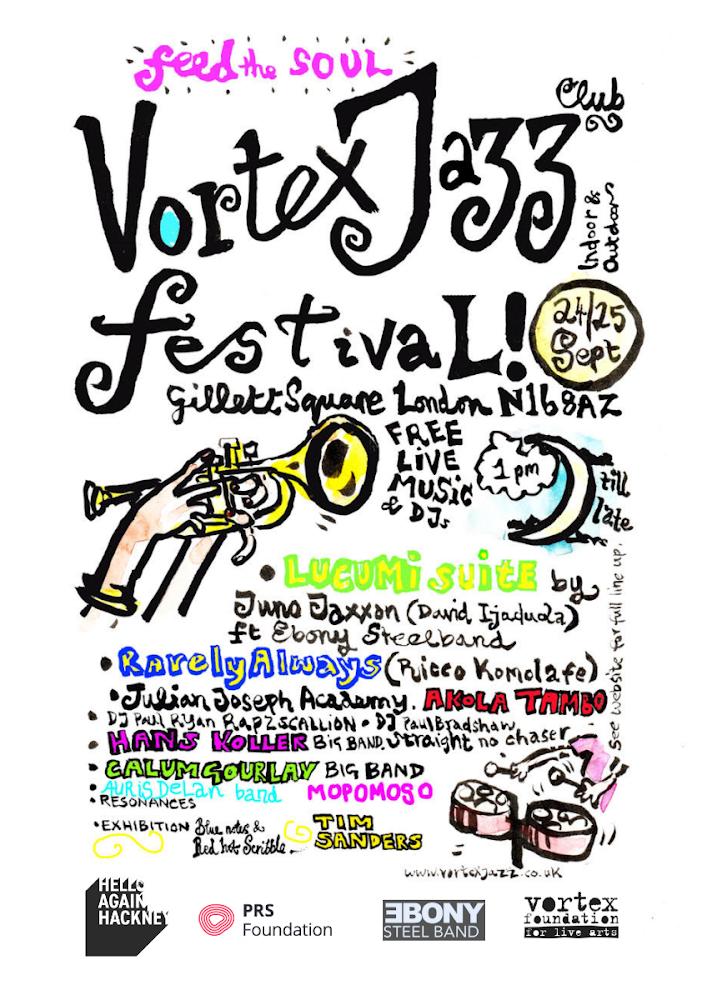 feed the SOUL
Vortex Jazz Club
Indoor & Outdoor
festival!
24/25 Sept
Gillett Square London N16 8AZ
FREE
LIVE
MUSIC
& DJs
1 pm
till late
• LUCUMI SUITE by
Juno Jaxxon (David Ijaduola)
ft Ebony Steelband
• Rarely Always (Ricco Komolafe)
• Julian Joseph Academy. AKOLA TAMBO
• DJ Paul Ryan RAPZSCALLION • DJ Paul Bradshaw
• HANS KOLLER BIG BAND. Straight no chaser
• CALUM GOURLAY BIG BAND
• AURIS DeLan band MOPOMOSO
• RESONANCES
• EXHIBITION Blue notes & Red hot Scribble TIM SANDERS
See website for full line up.
www.vortexjazz.co.uk
HELLO
AGAIN
HACKNEY
PRS
Foundation
EBONY
STEEL BAND
vortex
foundation
for live arts